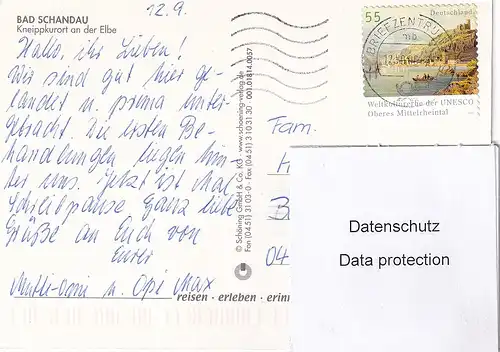 12.9.
BAD SCHANDAU
Kneippkurort an der Elbe
Hallo, ihr Lieben!
Wir sind gut hier ge-
landet u. prima unter-
gebracht. Die ersten Be-
handlungen liegen hin-
ter uns. Jetzt ist mal
Schreibpause. Ganz liebe
Grüße an Euch von
Eurer
Mutti-Omi u. Opi Max
reisen - erleben - erinn
© Schöning GmbH & Co. KG · www.schoening-verlag.de
Fon (04 51) 31 03-0 · Fax (04 51) 3 10 31 30 001 01814 0057
55 Deutschland
BRIEFZENTRUM
Weltkulturerbe der UNESCO
Oberes Mittelrheintal
Fam.
H
B
04
Datenschutz
Data protection